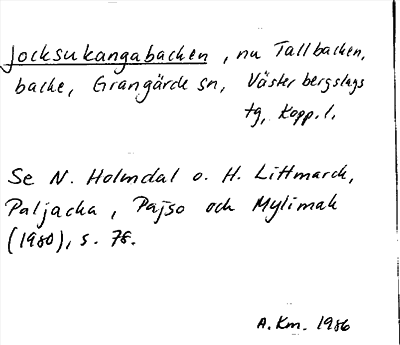 Jocksukangabacken, nu Tallbacken,
backe, Grangärde sn, Väster bergslags
tg, Kopp. l.
Se N. Holmdal o. H. Littmarck,
Paljacka, Pajso och Mylimak
(1980), s. 78.
A. Km. 1986